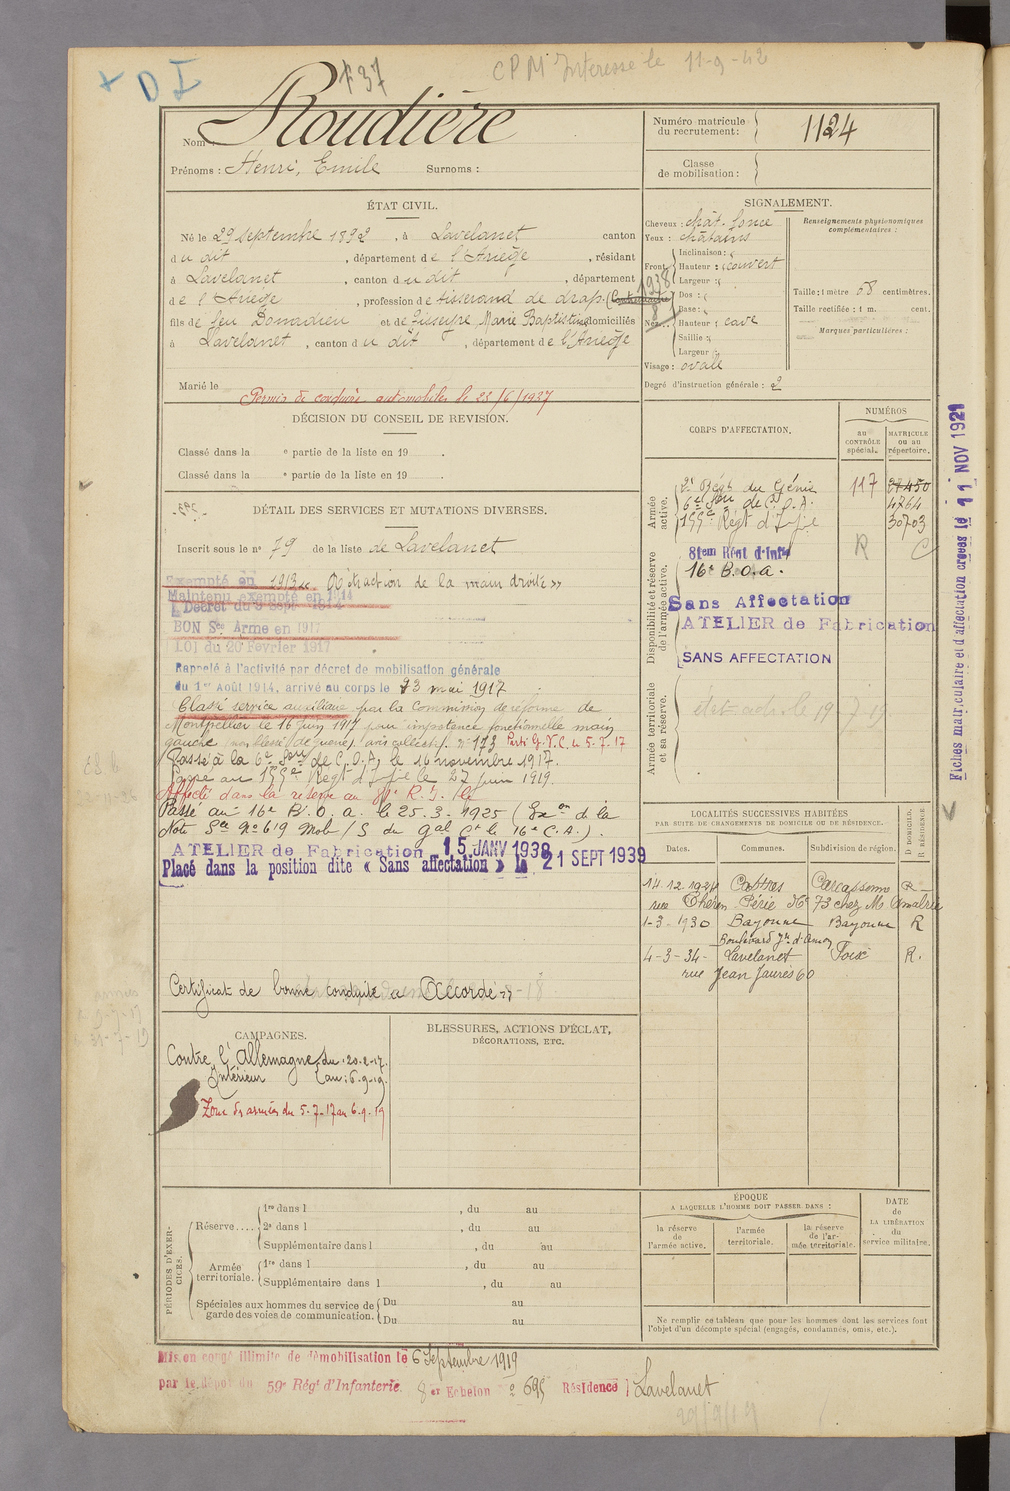 + D I
F 37
CPM Intéresse le 11-9-42
Nom : Roudière
Prénoms : Henri, Emile Surnoms :
Numéro matricule du recrutement : 1124
Classe de mobilisation :
ÉTAT CIVIL.
Né le 29 septembre 1892, à Lavelanet canton
du dit, département de l'Ariège, résidant
à Lavelanet, canton du dit, département
de l'Ariège, profession de tisserand de drap
fils de feu Donadieu et de Marie Baptistine domiciliés
à Lavelanet, canton du dit, département de l'Ariège
Marié le
Permis de conduire automobiles le 23/6/1937
SIGNALEMENT.
Cheveux : chât. foncé
Yeux : châtains
Front
Inclinaison :
Hauteur : couvert
Largeur :
Nez
Dos :
Base :
Hauteur : cave
Saillie :
Largeur :
Visage : ovale
Degré d'instruction générale : 2
1938
8
Renseignements physionomiques complémentaires :
Taille : 1 mètre 68 centimètres.
Taille rectifiée : 1 m. cent.
Marques particulières :
DÉCISION DU CONSEIL DE REVISION.
Classé dans la ᵉ partie de la liste en 19 .
Classé dans la ᵉ partie de la liste en 19 .
DÉTAIL DES SERVICES ET MUTATIONS DIVERSES.
Inscrit sous le n° 79 de la liste de Lavelanet
Exempté en 1913 « Rétraction de la main droite »
Maintenu exempté en 1914
Décret du 9 sept 1914
BON Sce Armé en 1917
LOI du 20 Février 1917
Rappelé à l'activité par décret de mobilisation générale
du 1er Août 1914, arrivé au corps le 23 mai 1917
Classé service auxiliaire par la Commission de réforme de
Montpellier le 16 juin 1917 pour impotence fonctionnelle main
gauche (non blessé de guerre) avis collectif n° 173 Parti G.V.C. le 5.7.17
Passé à la 6e Son de C.O.A. le 16 novembre 1917.
Passé au 155e Régt d'Ifie le 27 juin 1919.
Affecté dans la réserve au 81e R.I. le
Passé au 16e B.O.a. le 25.3.1925 (Exon de la
Note Sce No 619 Mob/S du Gal Ct le 16e C.A.).
ATELIER de Fabrication 15 JANV 1938
Placé dans la position dite « Sans affectation » le 21 SEPT 1939
Certificat de bonne conduite « Accordé »
CORPS D'AFFECTATION.
NUMÉROS
au CONTRÔLE spécial.
MATRICULE ou au répertoire.
Armée active.
2e Régt du Génie 117 27450
6e Son de C.O.A. 4764
155e Régt d'Ifie 30703
R C
Disponibilité et réserve de l'armée active.
81em Rént d'Infie
16e B.O.a.
Sans Affectation
ATELIER de Fabrication
SANS AFFECTATION
Armée territoriale et sa réserve.
Fiches matriculaire et d'affectation créées le 11 NOV 1921
LOCALITÉS SUCCESSIVES HABITÉES
PAR SUITE DE CHANGEMENTS DE DOMICILE OU DE RÉSIDENCE.
Dates. Communes. Subdivision de région. D DOMICILE. R RÉSIDENCE
14.12.1924 Castres Carcassonne R
rue Théron Périé No 73 chez M. Amalric
1-3-1930 Bayonne Bayonne R
Boulevard Jn d'Amou
4-3-34 - Lavelanet Foix R.
rue Jean Jaurès 60
CAMPAGNES.
Contre l'Allemagne du : 20-2-17.
Intérieur au : 6-9-19.
Zone des armées du 5-7-17 au 6-9-19
BLESSURES, ACTIONS D'ÉCLAT, DÉCORATIONS, ETC.
PÉRIODES D'EXERCICES.
Réserve....
1re dans l , du au
2e dans l , du au
Supplémentaire dans l , du au
Armée territoriale.
1re dans l , du au
Supplémentaire dans l , du au
Spéciales aux hommes du service de garde des voies de communication.
Du au
Du au
ÉPOQUE
A LAQUELLE L'HOMME DOIT PASSER DANS :
la réserve de l'armée active.
l'armée territoriale.
la réserve de l'armée territoriale.
DATE de LA LIBÉRATION du service militaire.
Ne remplir ce tableau que pour les hommes dont les services font
l'objet d'un décompte spécial (engagés, condamnés, omis, etc.).
Mis en congé illimité de démobilisation le 6 Septembre 1919
par le dépôt du 59e Régt d'Infanterie. 8 er Echelon n° 695 Résidence : Lavelanet